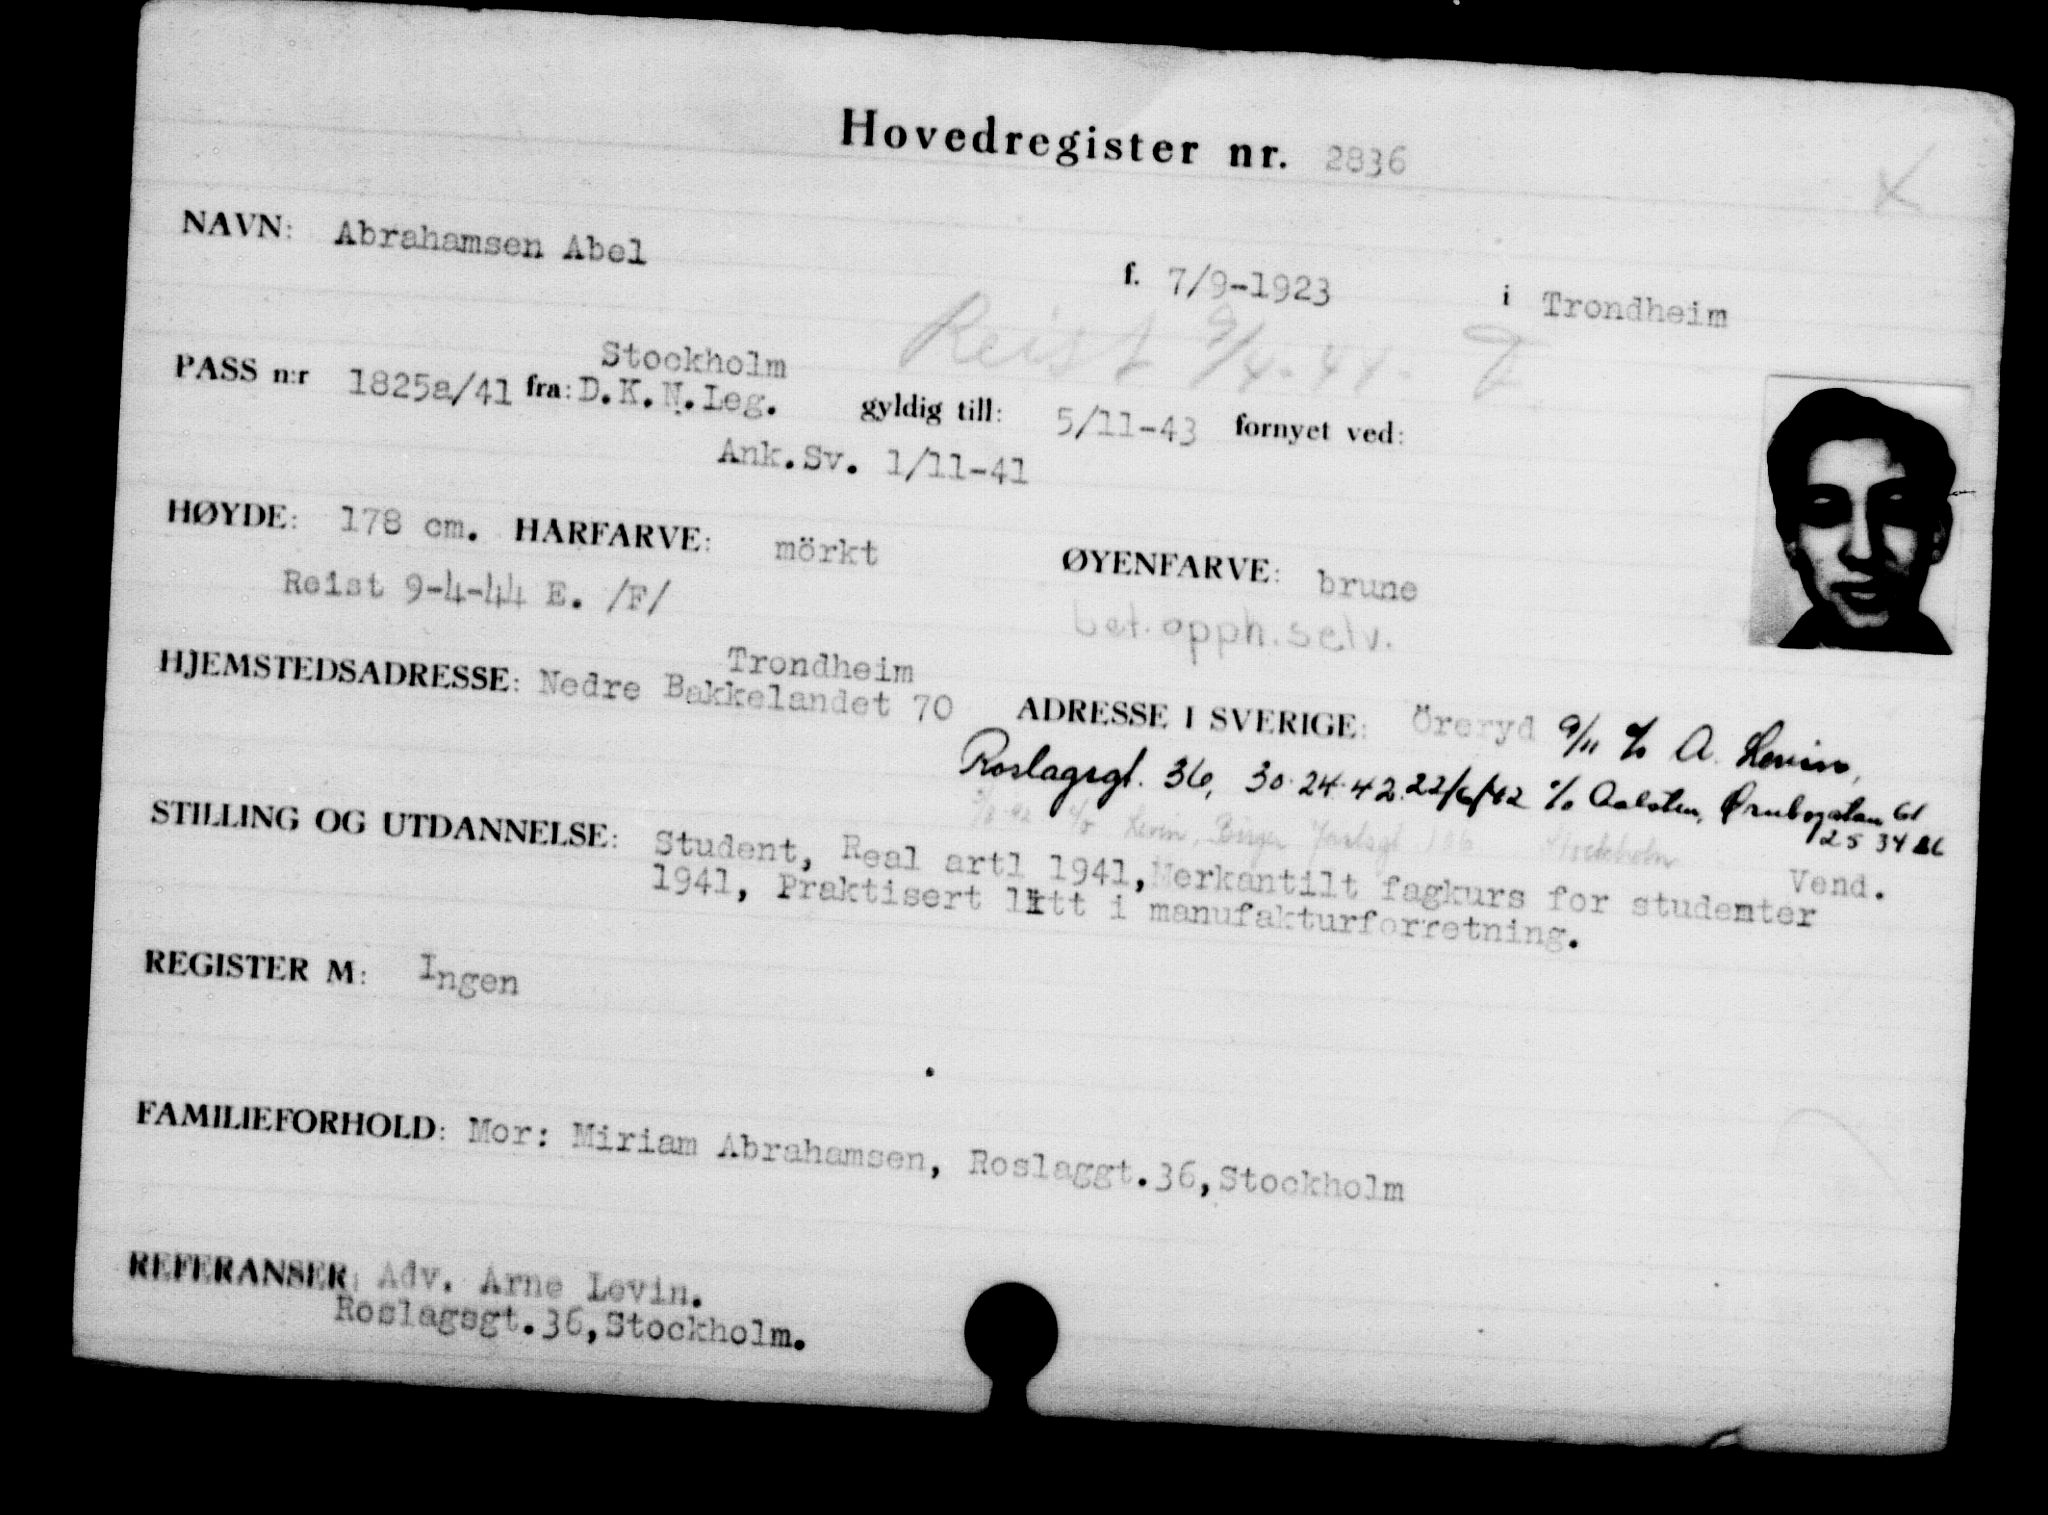 Hovedregister nr. 2836
NAVN: Abrahamsen Abel f. 7/9-1923 i Trondheim
Reist 9/4-44.
Stockholm
PASS n:r 1825a/41 fra: D.K.N.Leg. gyldig till: 5/11-43 fornyet ved:
Ank.Sv. 1/11-41
HØYDE: 178 cm. HARFARVE: mörkt ØYENFARVE: brune
Reist 9-4-44 E. /F/
bet. opph. selv.
Trondheim
HJEMSTEDSADRESSE: Nedre Bakkelandet 70 ADRESSE I SVERIGE: Öreryd 9/11 c/o A. Levin,
Roslagsgt. 36, 30.24.42. 22/6/42 c/o
c/o Levin, Birger Jarlsgt 106 Stockholm
Vend.
STILLING OG UTDANNELSE: Student, Real artl 1941, Merkantilt fagkurs for studenter
1941, Praktisert litt i manufakturforretning.
REGISTER M: Ingen
FAMILIEFORHOLD: Mor: Miriam Abrahamsen, Roslaggt.36, Stockholm
REFERANSER: Adv. Arne Levin.
Roslagsgt.36, Stockholm.